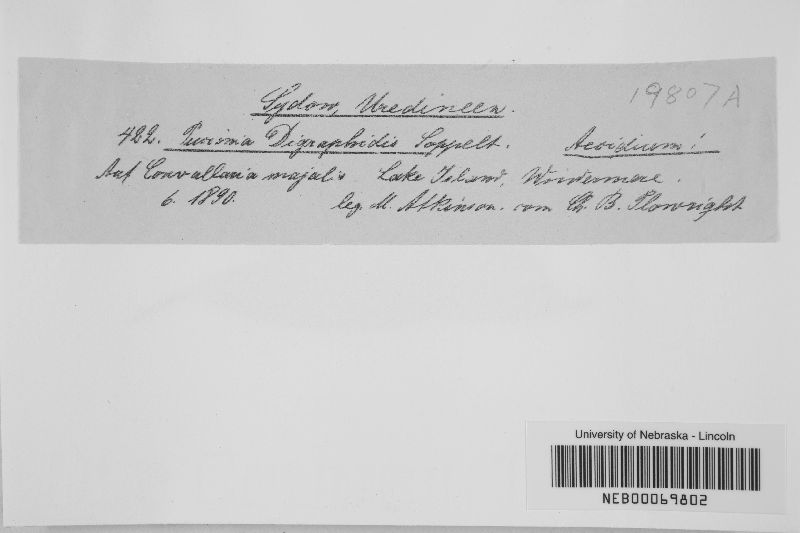 Sydow, Uredineen.
19807A
422. Puccinia Digraphidis Soppelt. Aecidium!
Auf Convallaria majalis Lake Island, Windermere.
6. 1890. leg. M. Atkinson. com Ch. B. Plowright
University of Nebraska - Lincoln
NEB00069802